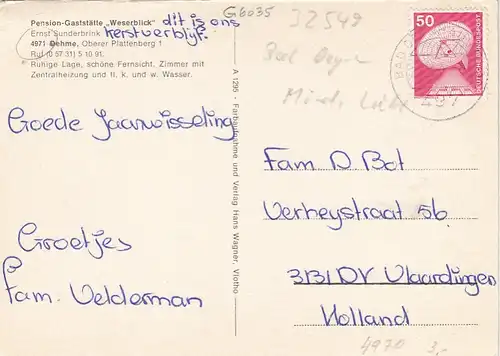 Pension-Gaststätte „Weserblick"
Ernst Sunderbrink
4971 Dehme, Oberer Plattenberg 1
Ruf (0 57 31) 5 10 91.
Ruhige Lage, schöne Fernsicht, Zimmer mit
Zentralheizung und fl. k. und w. Wasser.
dit is ons
kerstverblijf.
G6035
32549
Bad
Goede Jaarwisseling
Groetjes
Fam. Velderman
A 1295 - Farbaufnahme und Verlag Hans Wagner, Vlotho
50
DEUTSCHE BUNDESPOST
BAD
497
Fam D Bot
Verheystraat 56
3131 DV Vlaardingen
Holland
4970 3,-